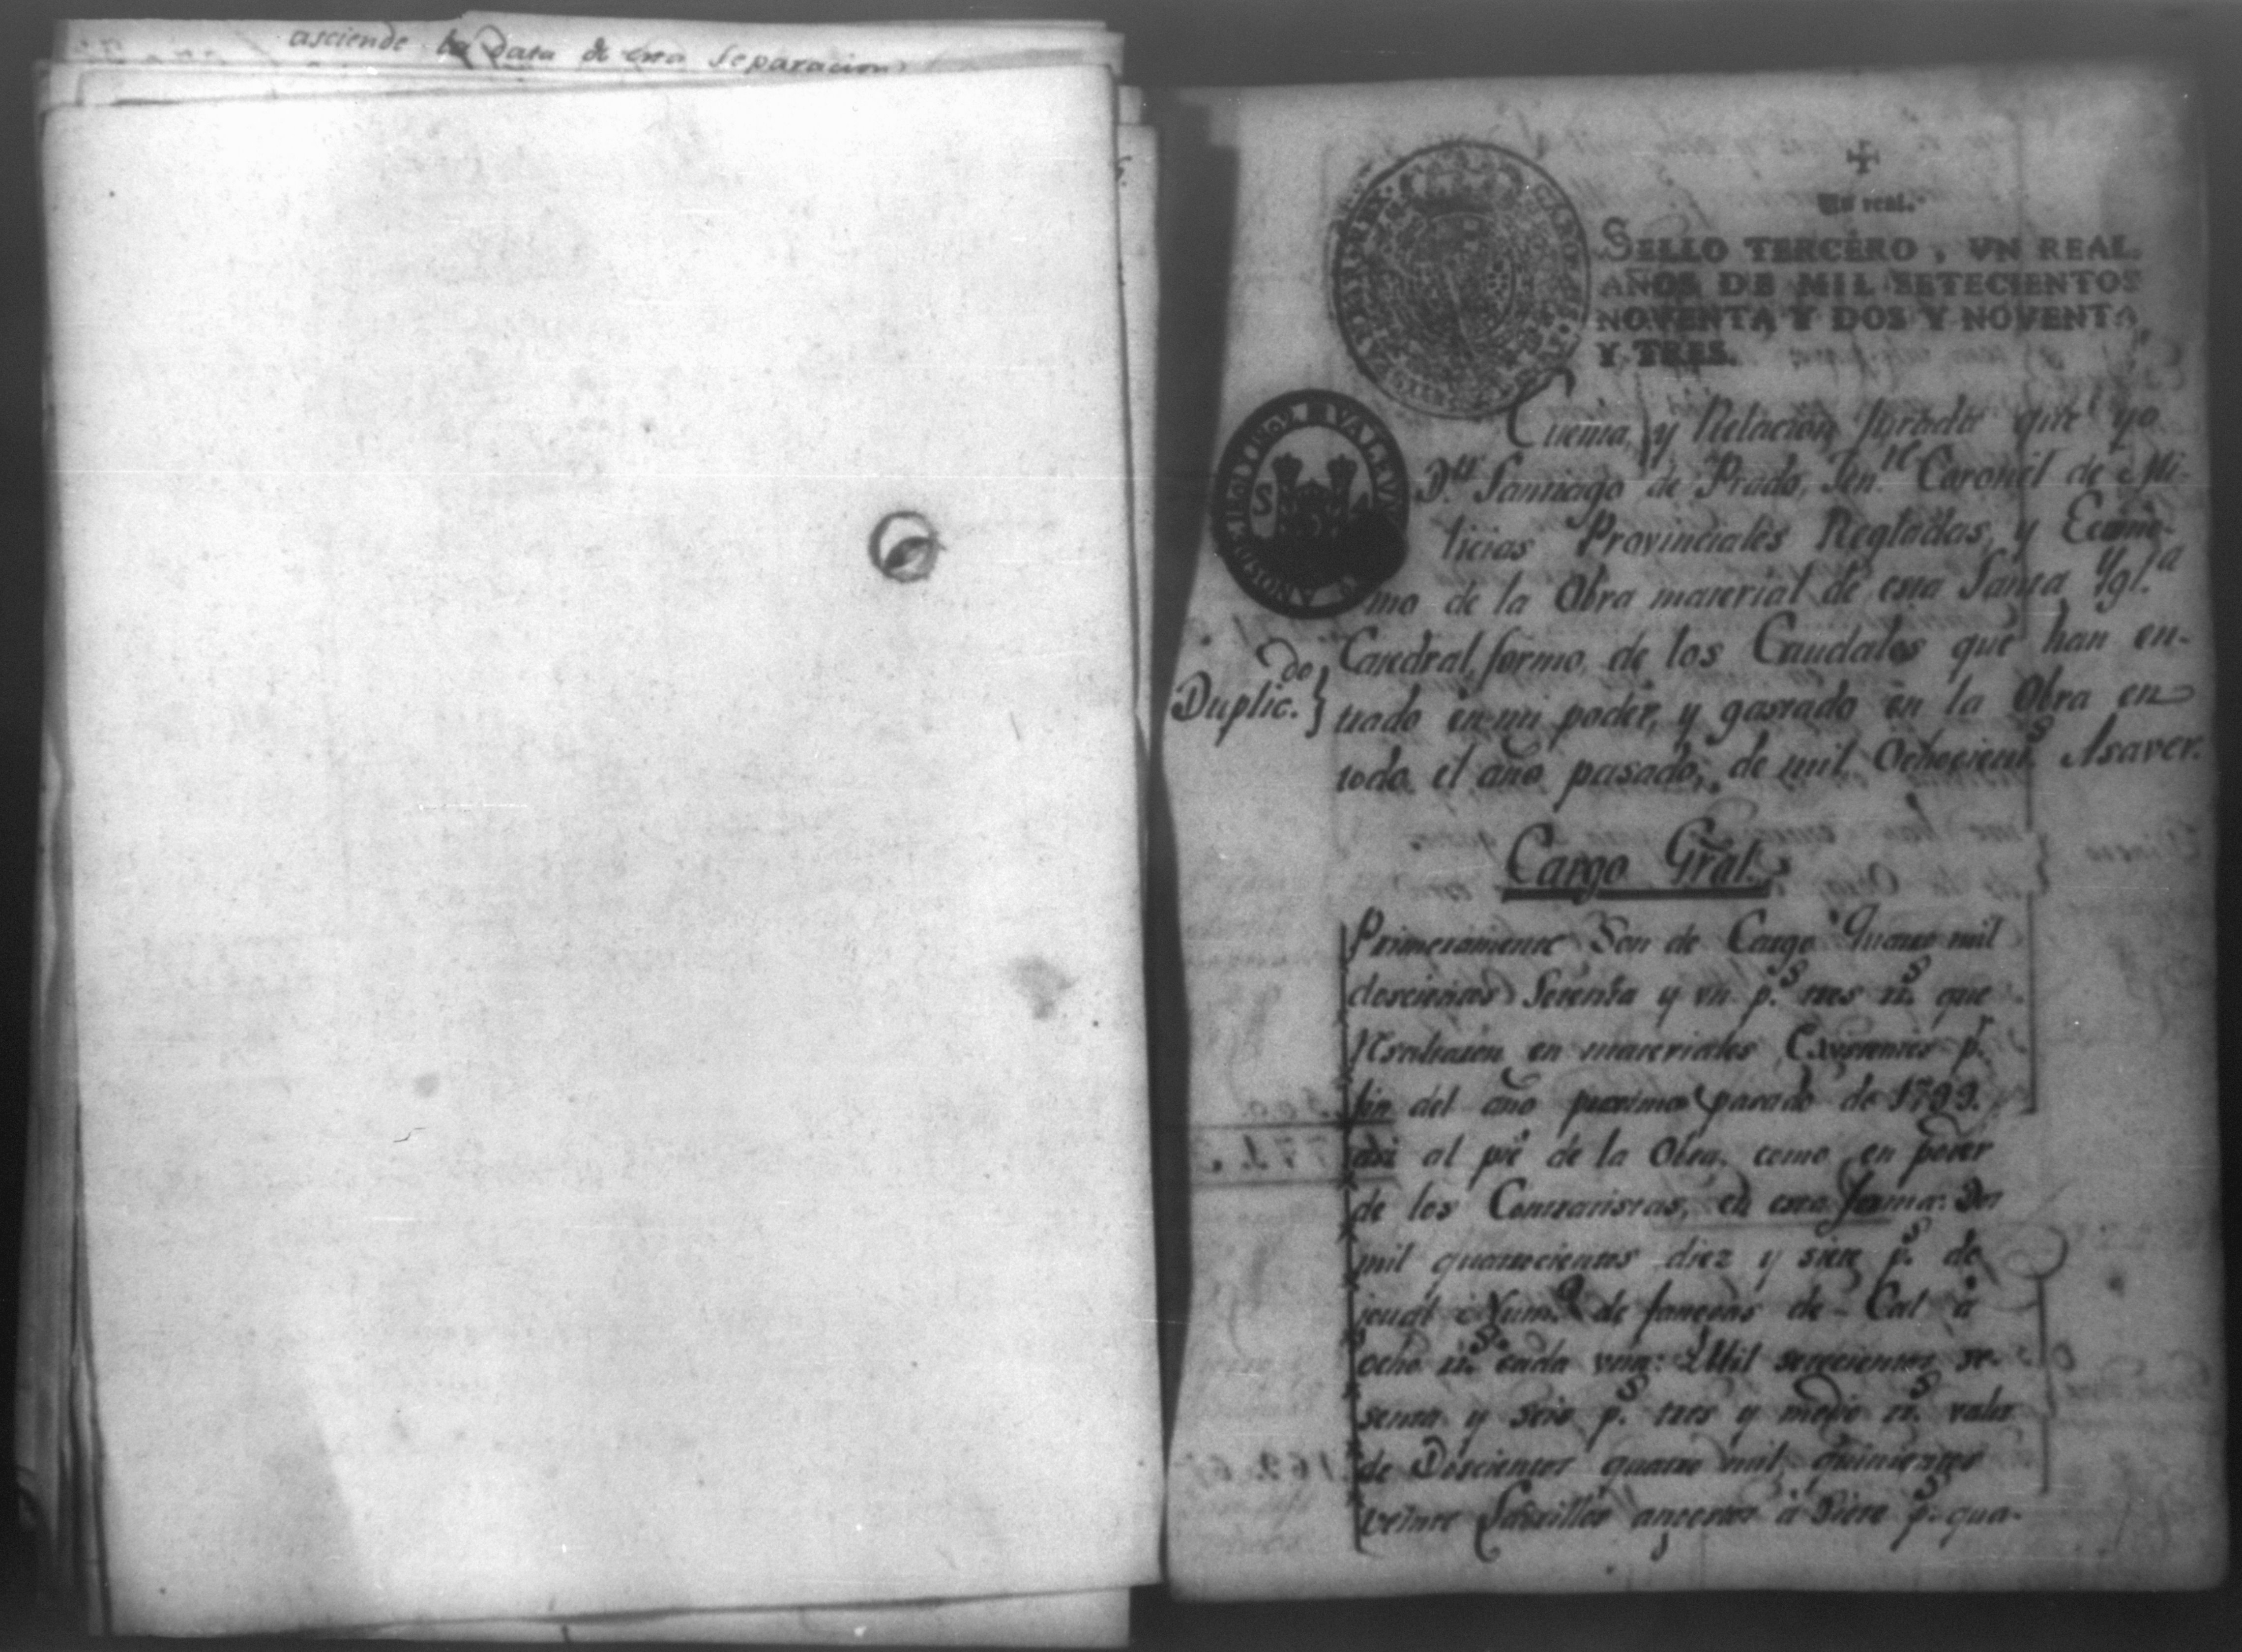 asciende la Data de esta Separacion
Un real.
SELLO TERCERO, VN REAL,
AÑOS DE MIL SETECIENTOS
NOVENTA Y DOS Y NOVENTA
Y TRES.
Cuenta, y Relacion Jurada que yo
D.n Santiago de Prado, Ten.te Coronel de Mi-
licias Provinciales Regladas, y Econo-
mo de la Obra material de esta Santa Ygl.a
Catedral, formo, de los Caudales que han en-
Duplic.do
trado en mi poder, y gastado en la Obra en
todo el año pasado, de mil Ochocient.s Asaver.
Cargo Gral.
Primeramente Son de Cargo Quatro mil
doscientos Setenta y un p.s tres rr.s que
Resultaron en materiales Existentes p.r
fin del año proximo pasado de 1799.
asi al pie de la Obra, como en poder
de los Contratistas, en esta forma: Dos
mil quatrocientos diez y siete p.s de
igual Num.o de fanegas de Cal à
ocho rr.s cada una: Mil setecientos se-
senta y seis p.s tres y medio rr.s valor
de Doscientos quatro mil, quinientos
veinte Ladrillos angostos à Siete p.s qua-